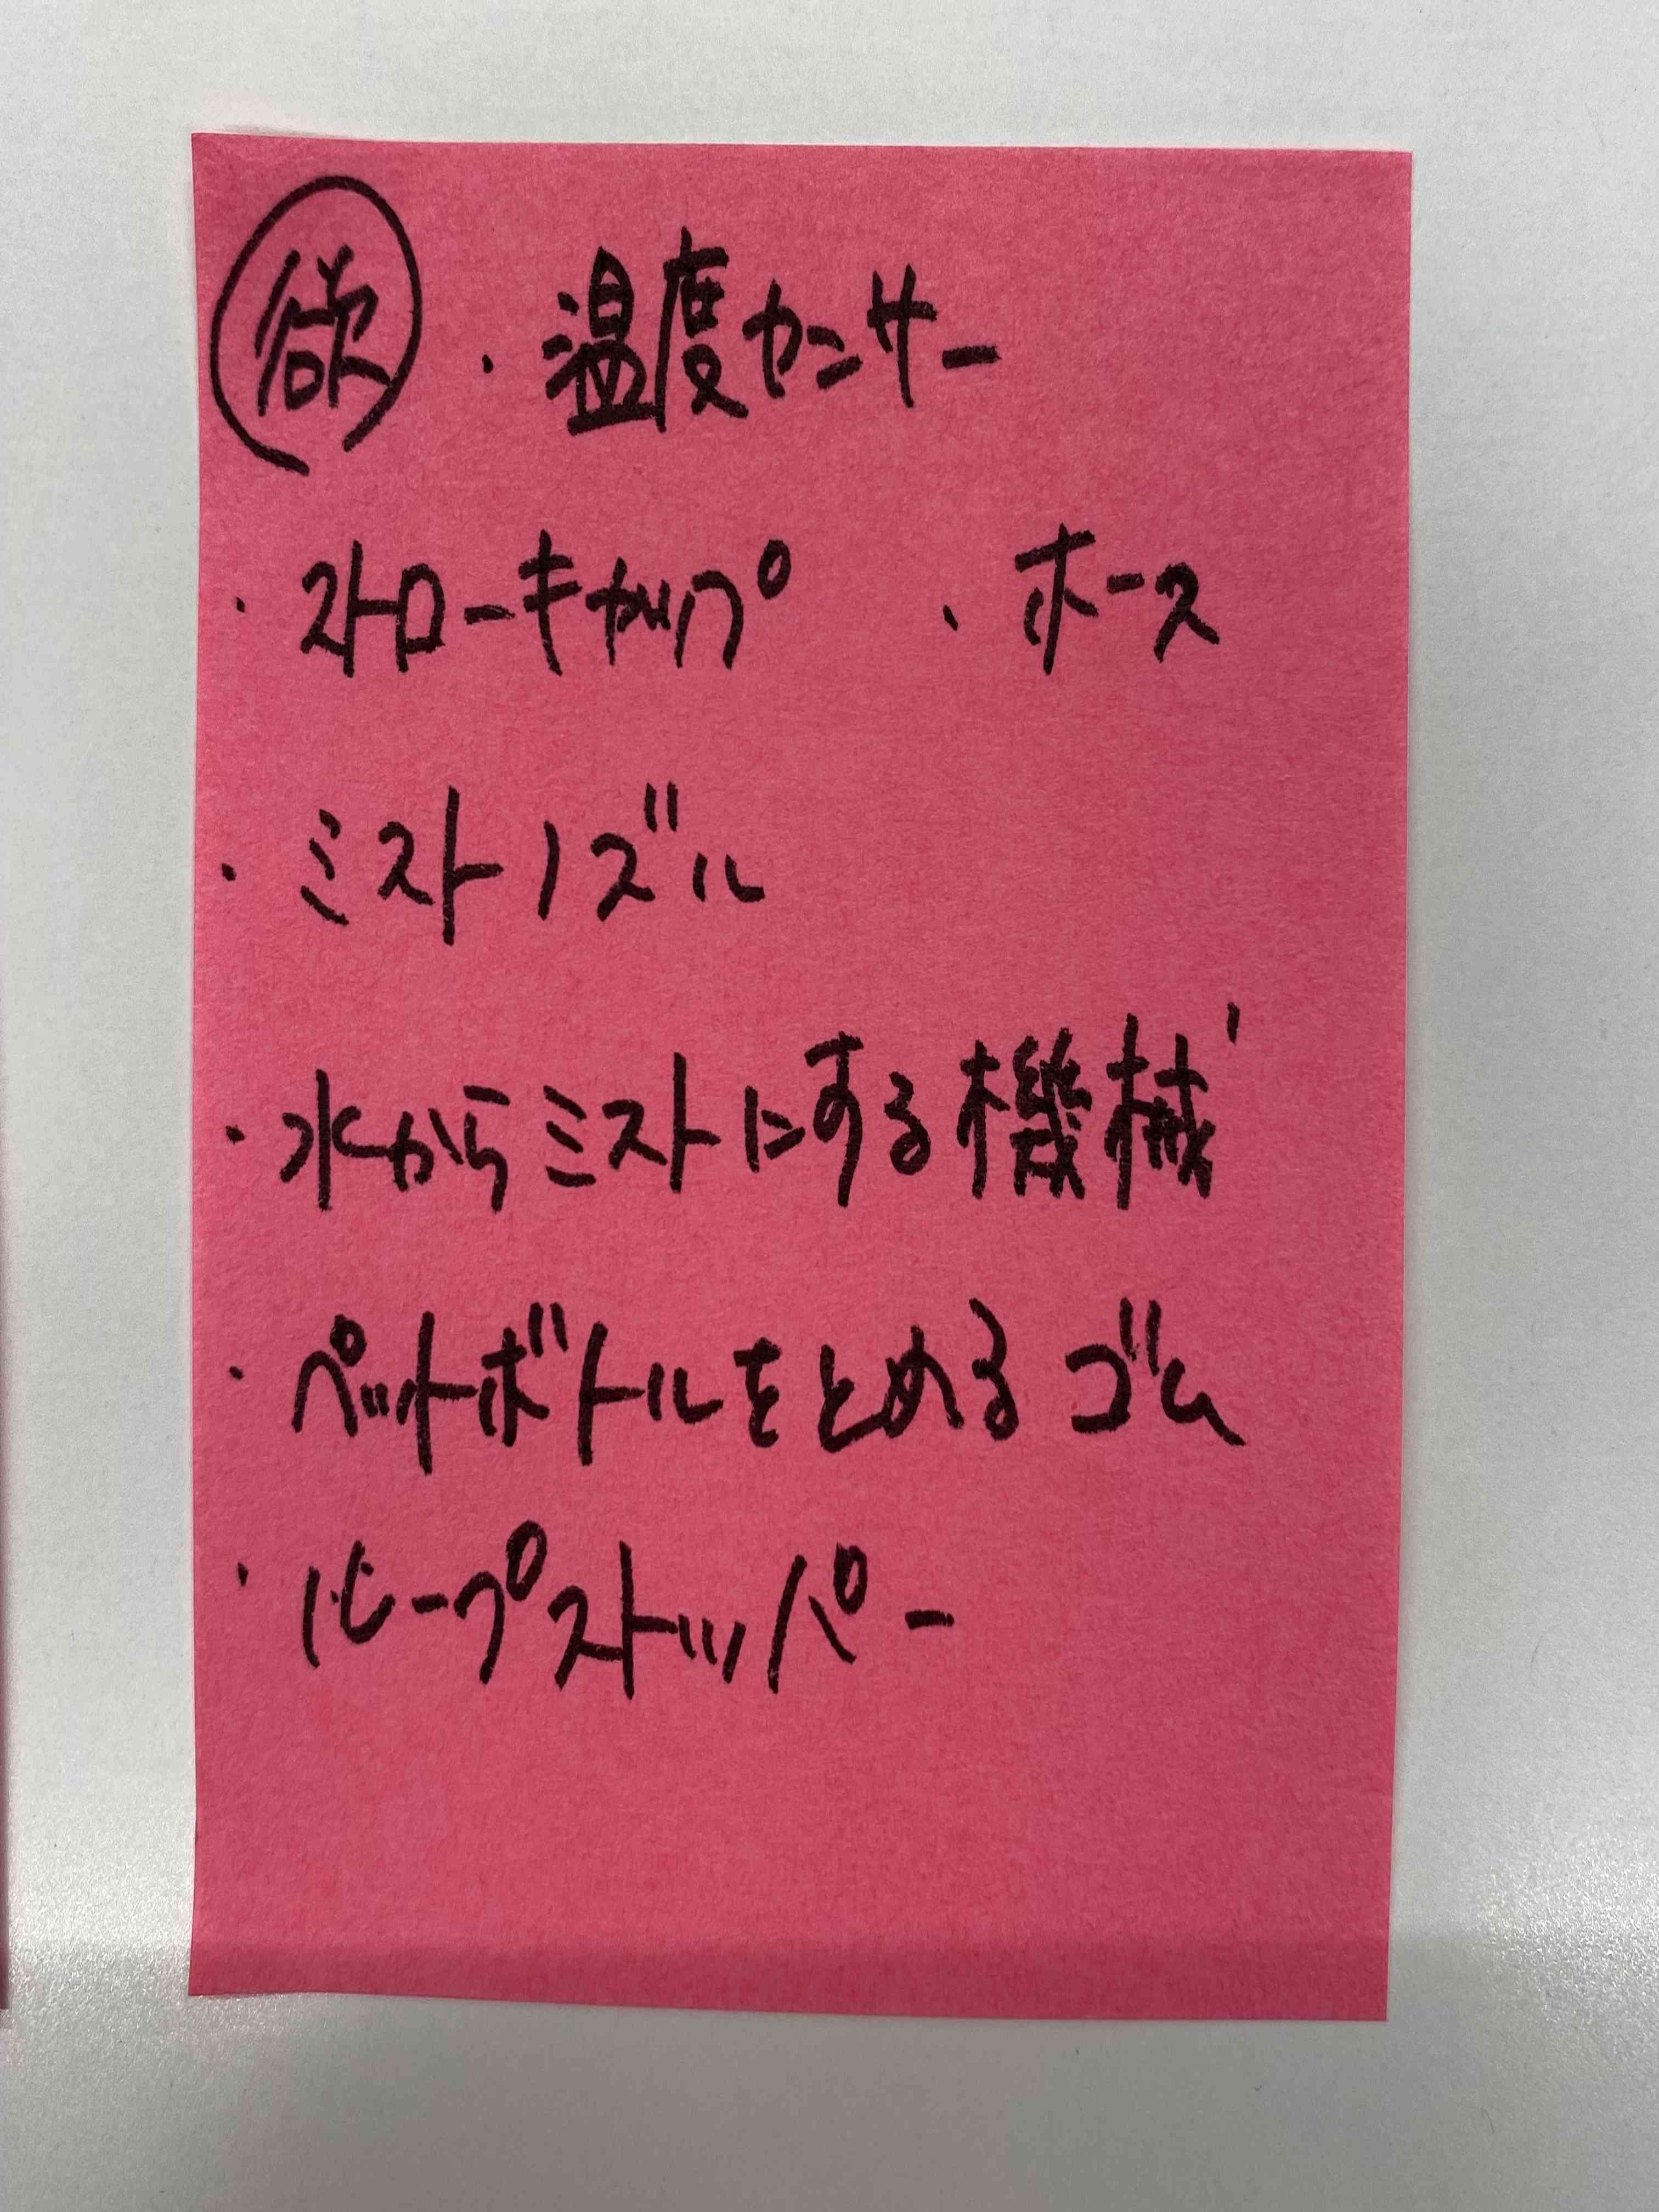 欲 ・温度センサー
・ストローキャップ ・ホース
・ミストノズル
・水からミストにする機械
・ペットボトルをとめるゴム
・ストッパー